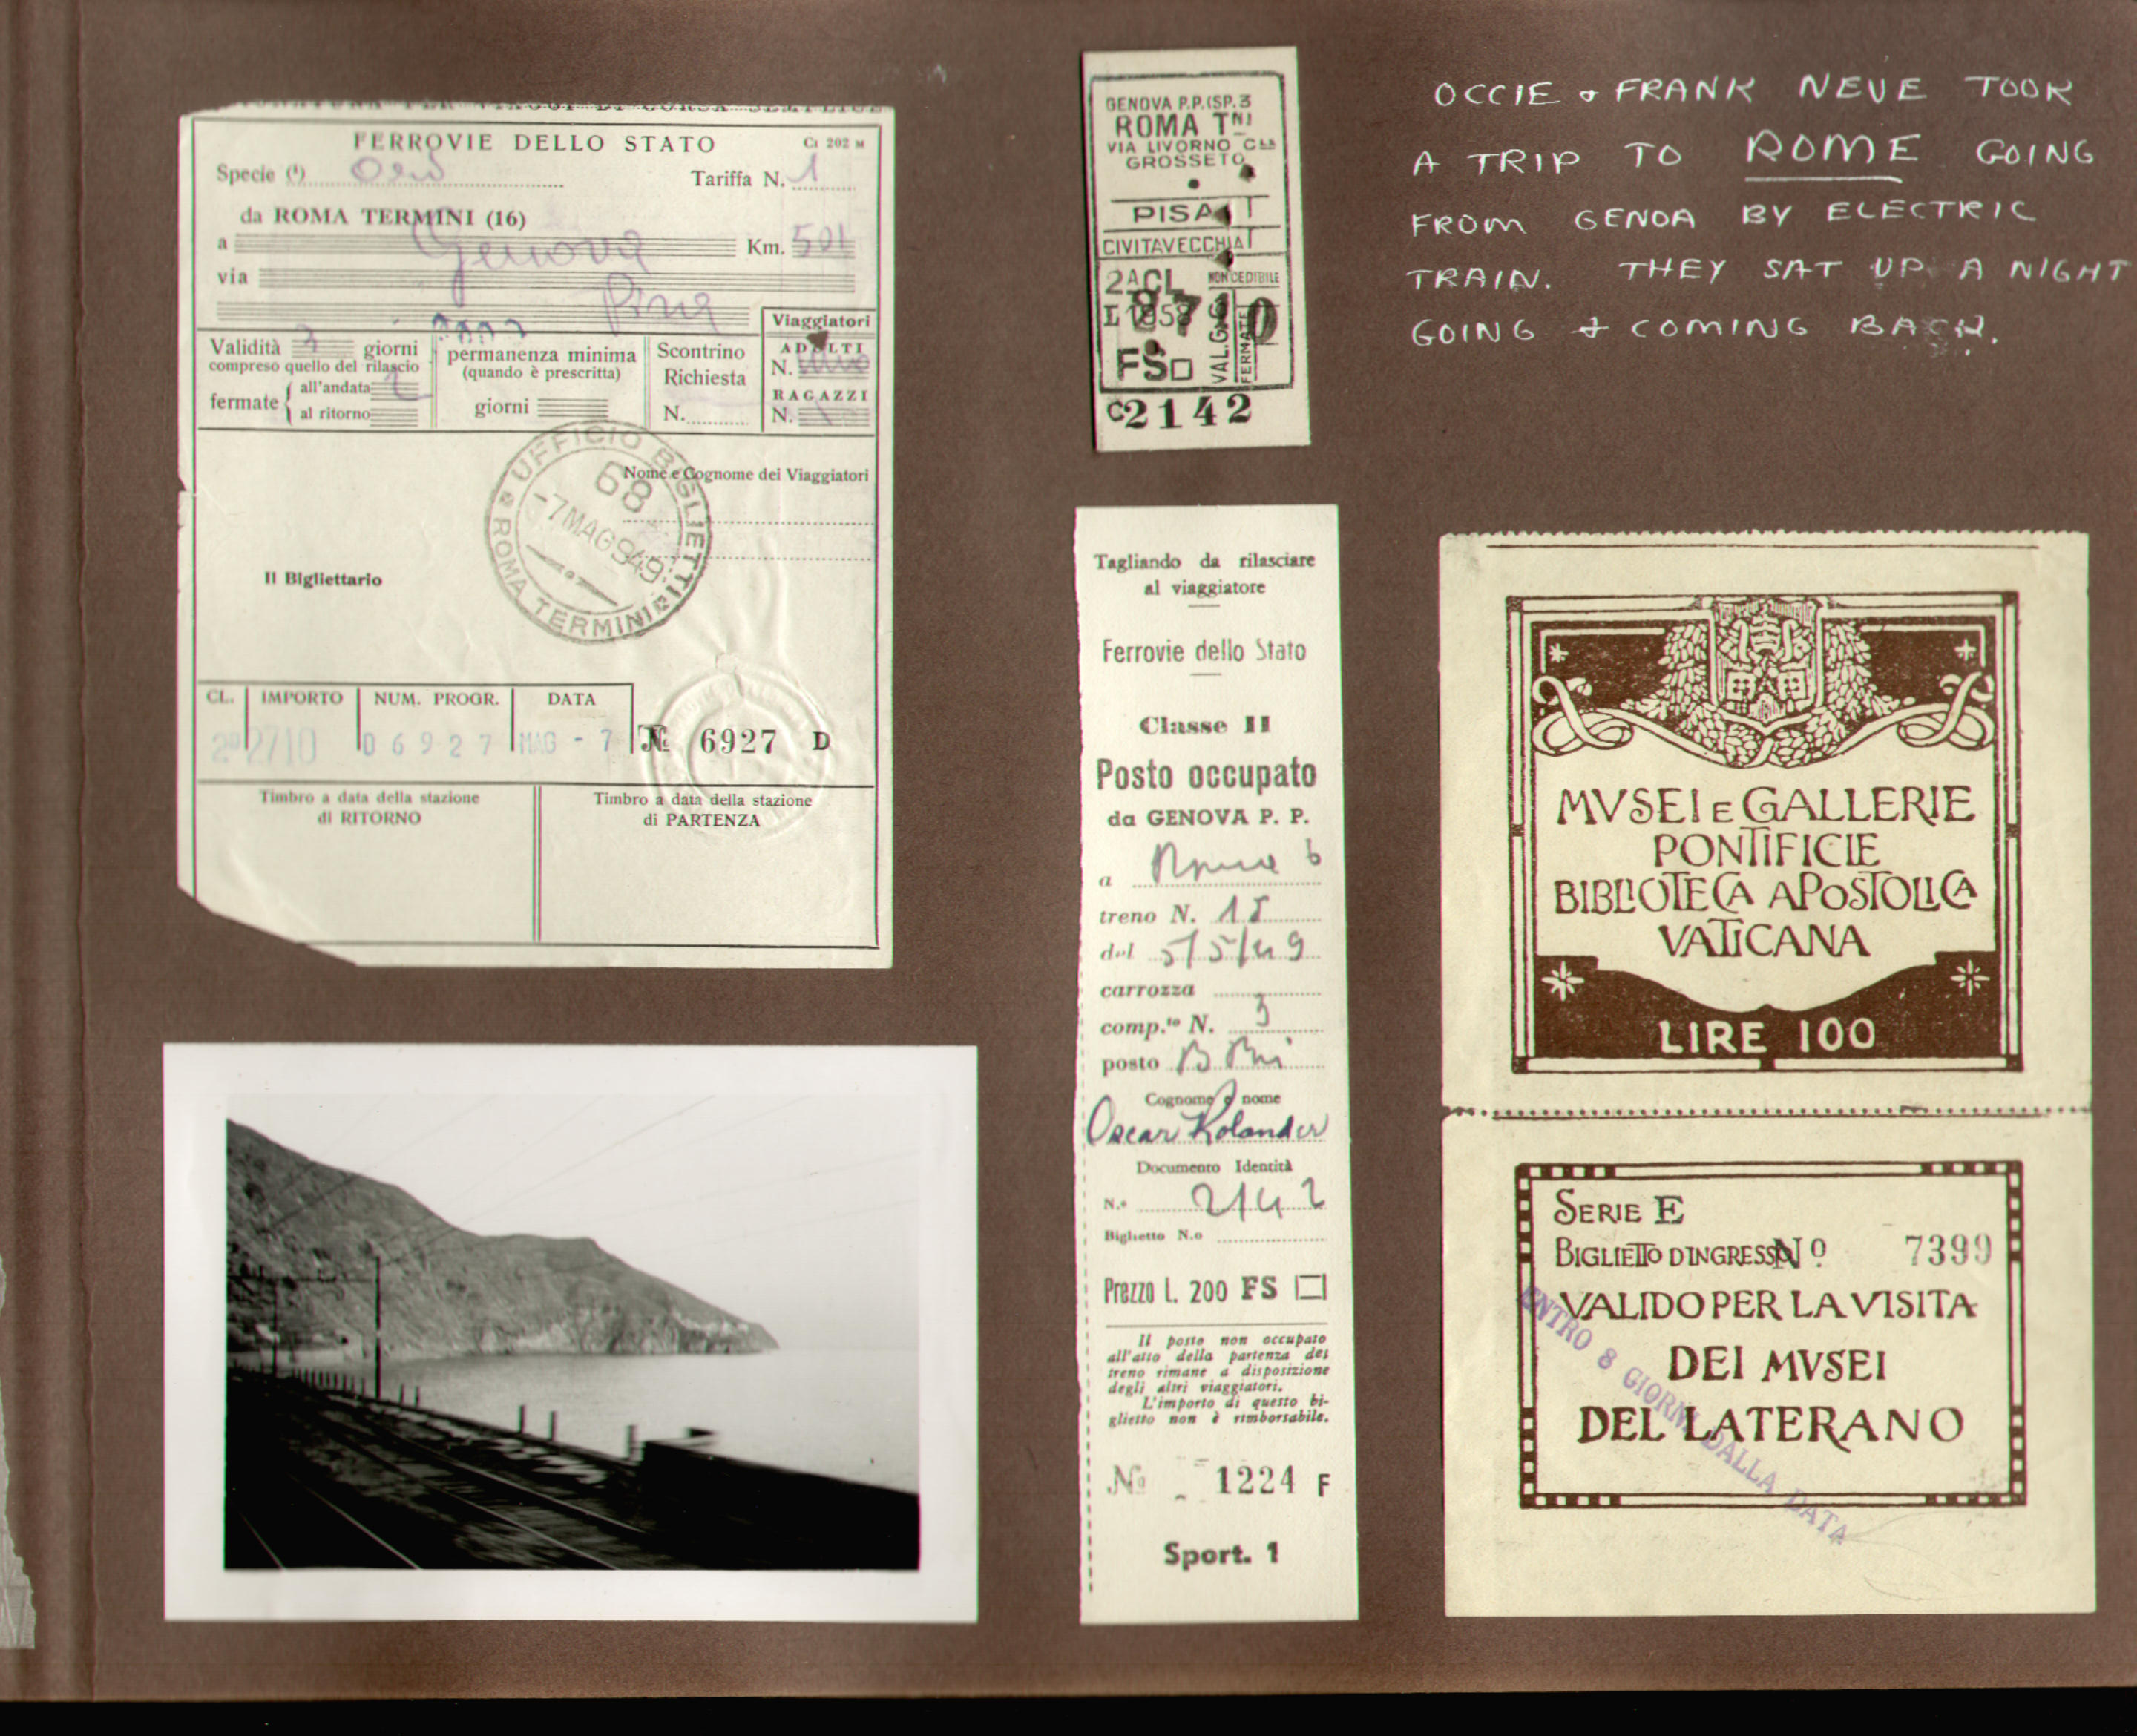 FERROVIE DELLO STATO
Ci 202 M
Specie (¹)
Tariffa N. 1
da ROMA TERMINI (16)
a Genova Km. 501
via Pisa
Viaggiatori
Validità 3 giorni
compreso quello del rilascio
fermate all'andata 2
al ritorno
permanenza minima
(quando è prescritta)
giorni
Scontrino
Richiesta
N.
ADULTI
N. Uno
RAGAZZI
N.
Nome e Cognome dei Viaggiatori
UFFICIO BIGLIETTI
68
-7 MAG 949
ROMA TERMINI
Il Bigliettario
CL. IMPORTO NUM. PROGR. DATA
2ª 2710 06927 MAG - 7 № 6927 D
Timbro a data della stazione
di RITORNO
Timbro a data della stazione
di PARTENZA
GENOVA P.P.(SP.3
ROMA TNI
VIA LIVORNO CLE
GROSSETO
PISA T
CIVITAVECCHIA T
2ACL NON CEDIBILE
FS
VAL.G.
FERMATE
C2142
OCCIE + FRANK NEVE TOOK
A TRIP TO ROME GOING
FROM GENOA BY ELECTRIC
TRAIN. THEY SAT UP A NIGHT
GOING + COMING BACK.
Tagliando da rilasciare
al viaggiatore
Ferrovie dello Stato
Classe II
Posto occupato
da GENOVA P. P.
a Roma
treno N. 15
del 5/5/49
carrozza
comp.to N. 3
posto
Cognome e nome
Oscar Rolander
Documento Identità
N.o 2142
Biglietto N.o
Prezzo L. 200 FS
Il posto non occupato
all'atto della partenza del
treno rimane a disposizione
degli altri viaggiatori.
L'importo di questo bi-
glietto non è rimborsabile.
No 1224 F
Sport. 1
MVSEI E GALLERIE
PONTIFICIE
BIBLIOTECA APOSTOLICA
VATICANA
LIRE 100
SERIE E
BIGLIETTO D'INGRESSO Nº 7399
VALIDO PER LA VISITA
DEI MVSEI
DEL LATERANO
ENTRO 8 GIORNI DALLA DATA